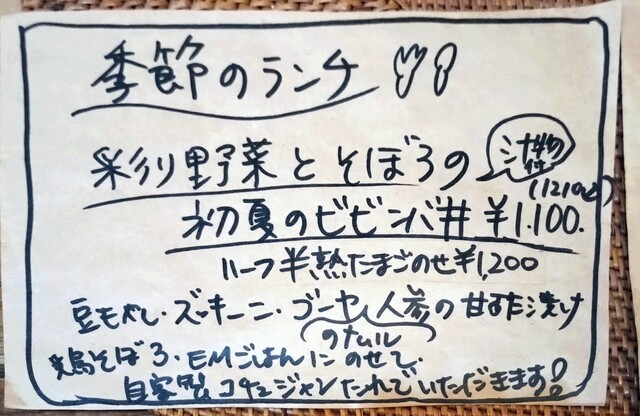 季節のランチ
彩り野菜とそぼろの
汁物付
初夏のビビンバ丼 ¥1,100.
(1210込)
ハーフ半熟たまごのせ¥1,200
豆もやし・ズッキーニ・ゴーヤ人参の甘酢漬け
のナムル
鶏そぼろ・EMごはんにのせて、
自家製コチュジャンたれでいただきます!